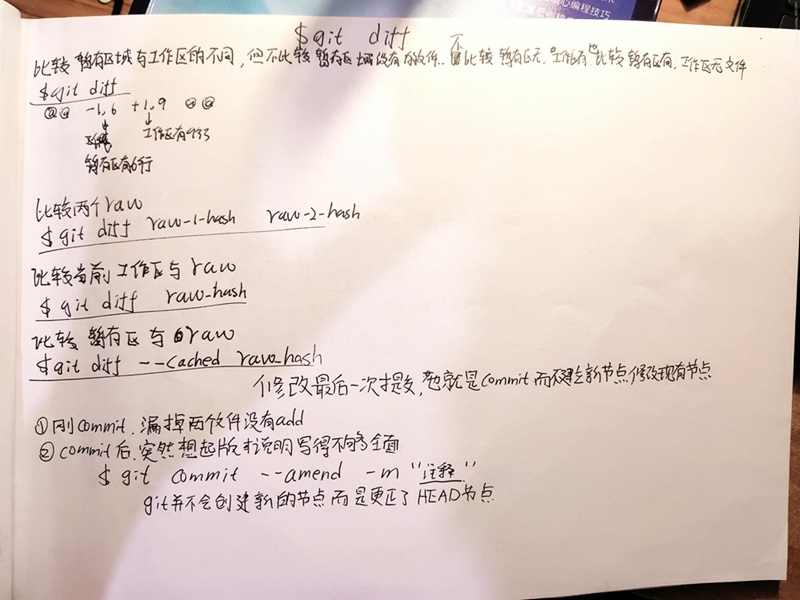 编程技巧
$ git diff
比较暂存区域与工作区的不同,但不比较暂存区域没有的文件. 不比较暂存区无,工作区有 比较暂存区有,工作区无文件
$ git diff
@@ -1,6 +1,9 @@
工作区有9行
暂存区有6行
比较两个raw
$ git diff raw-1-hash raw-2-hash
比较当前工作区与raw
$ git diff raw-hash
比较暂存区与raw
$ git diff --cached raw-hash
修改最后一次提交,也就是commit而不建立新节点修改现有节点
①刚commit,漏掉两个文件没有add
②commit后,突然想起版本说明写得不够全面
$ git commit --amend -m "注释"
git并不会创建新的节点而是更正了HEAD节点